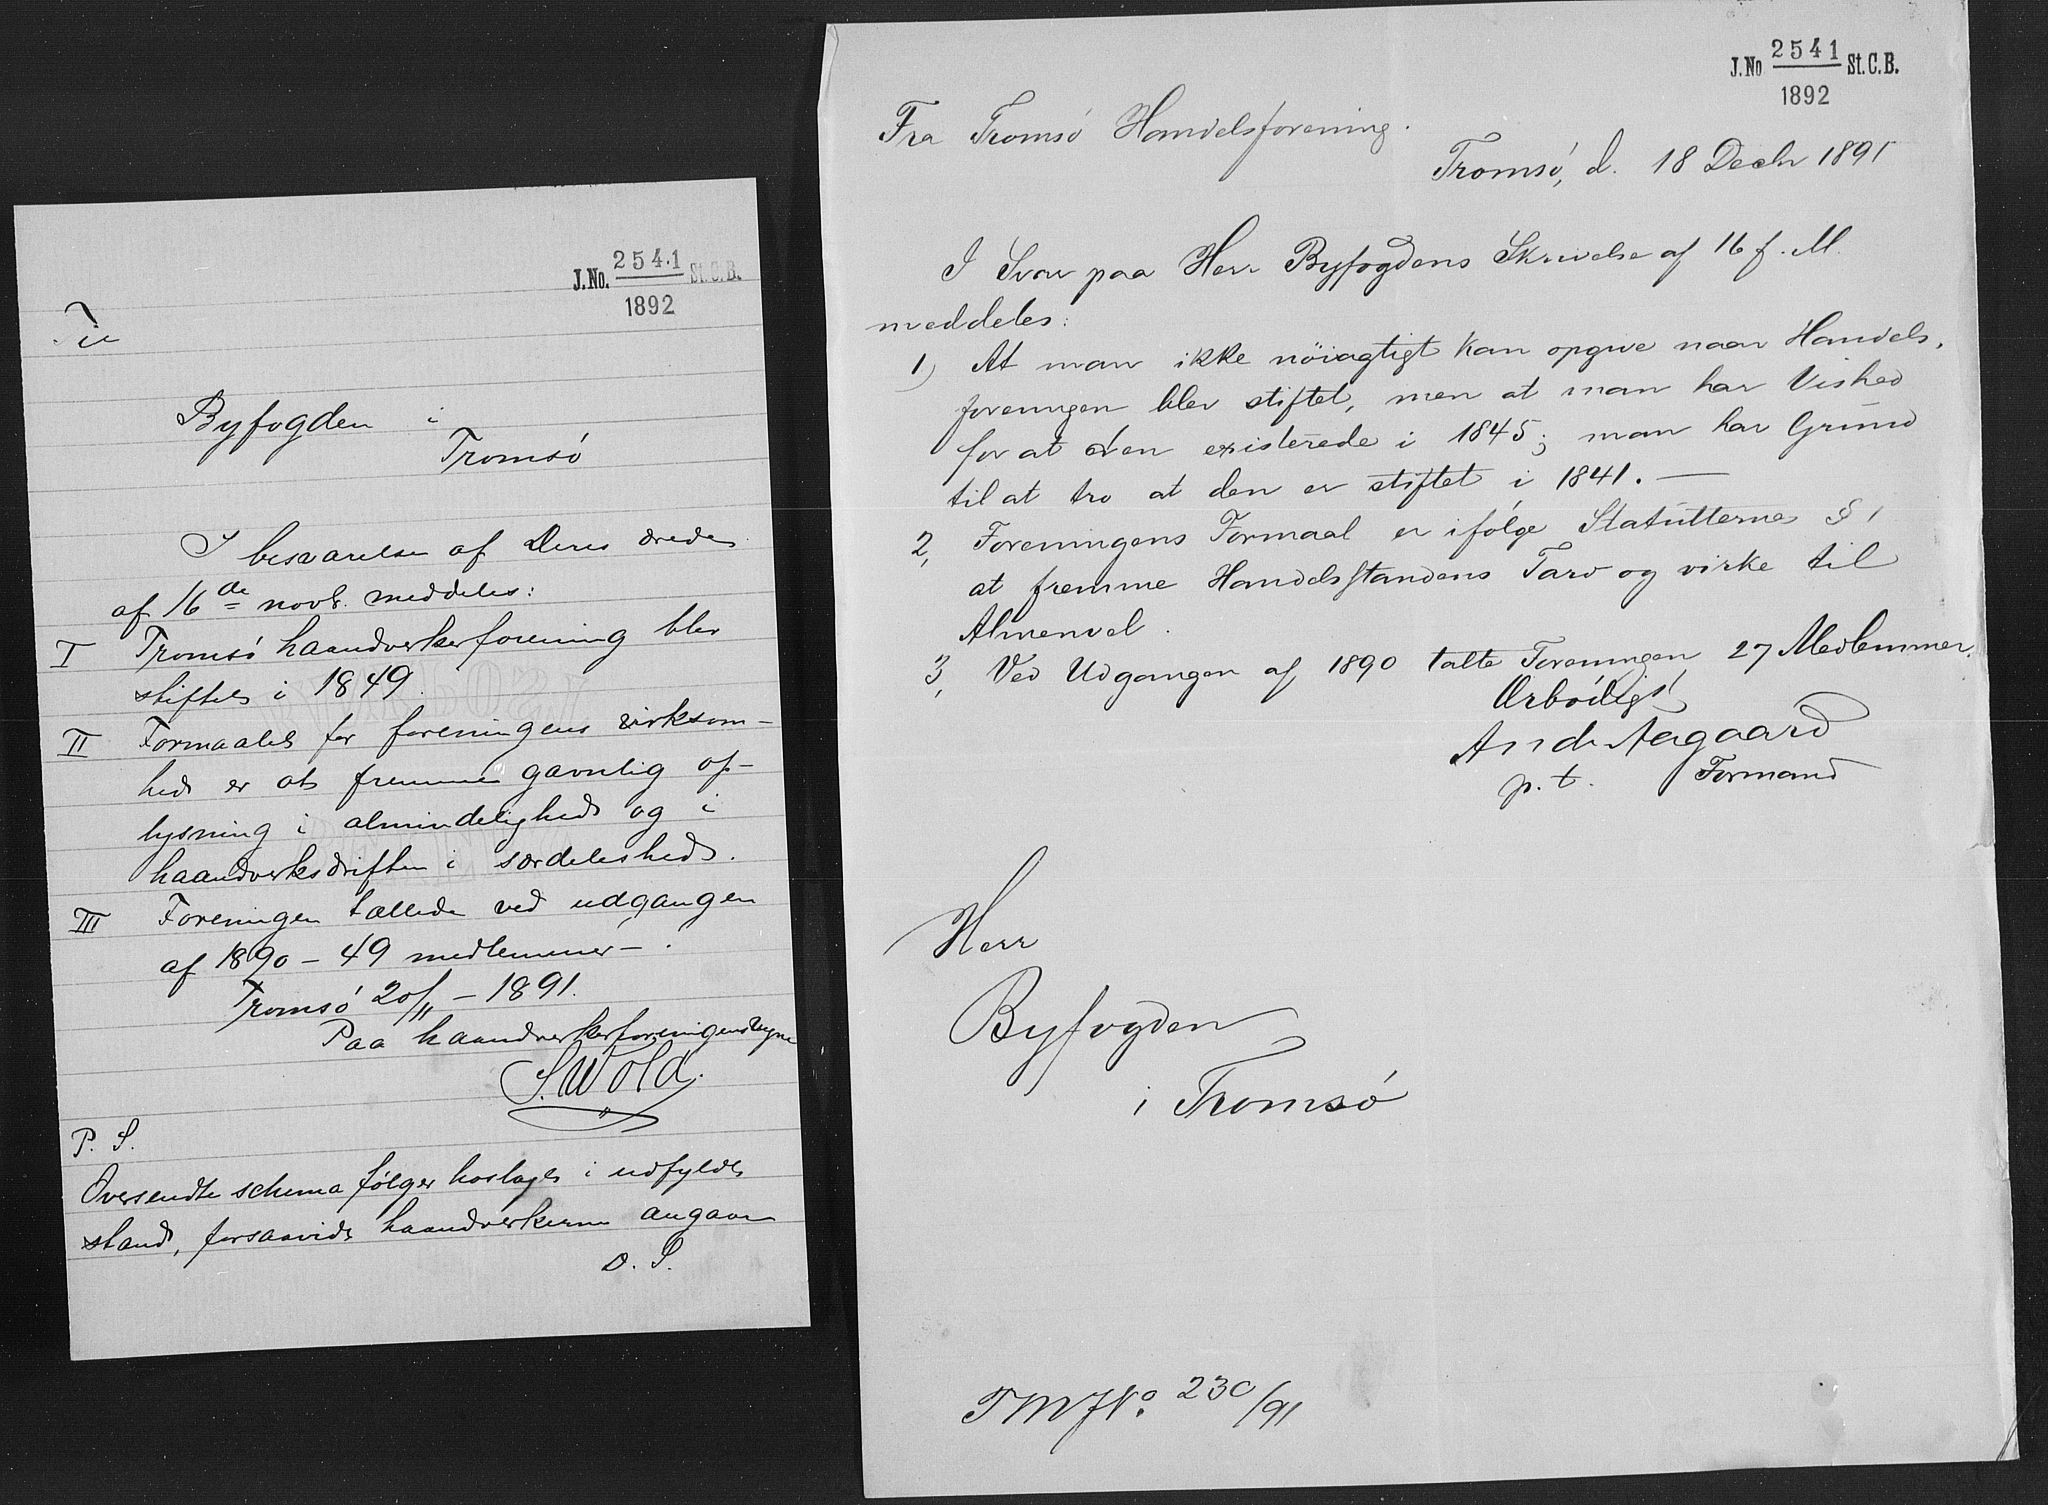 J.No. 2541 St.C.B.
1892
Til
Byfogden i
Tromsø
I besvarelse af Deres ærede
af 16de novb. meddeles:
I Tromsø haandverkerforening blev
stiftet i 1849.
II Formaalet for foreningens virksom-
hed er at fremme gavnlig op-
lysning i almindelighed og i
haandverksdriften i særdeleshed.
III Foreningen tællede ved udgangen
af 1890 – 49 medlemmer –.
Tromsø 20/11 – 1891.
Paa haandverkerforeningens vegne
S. Wold.
P. S.
Oversendte schema følger hoslagt i udfyldt
stand, forsaavidt haandverkerne angaar
D. S.
J.No 2541 St.C.B.
1892
Fra Tromsö Handelsforening.
Tromsö, d. 18 Decbr 1891
I Svar paa Herr Byfogdens Skrivelse af 16 f. M.
meddeles:
1) At man ikke nöiagtigt kan opgive naar Handels-
foreningen blev stiftet, men at man har Vished
for at den existerede i 1845; man har Grund
til at tro at den er stiftet i 1841. —
2, Foreningens Formaal er ifölge Statutternes § 1
at fremme Handelsstandens Tarv og virke til
Almenvel.
3, Ved Udgangen af 1890 talte Foreningen 27 Medlemmer.
Ærbödigst
Andr Aagaard
p. t. Formand
Herr
Byfogden
i Tromsö
TMJNo. 230/91